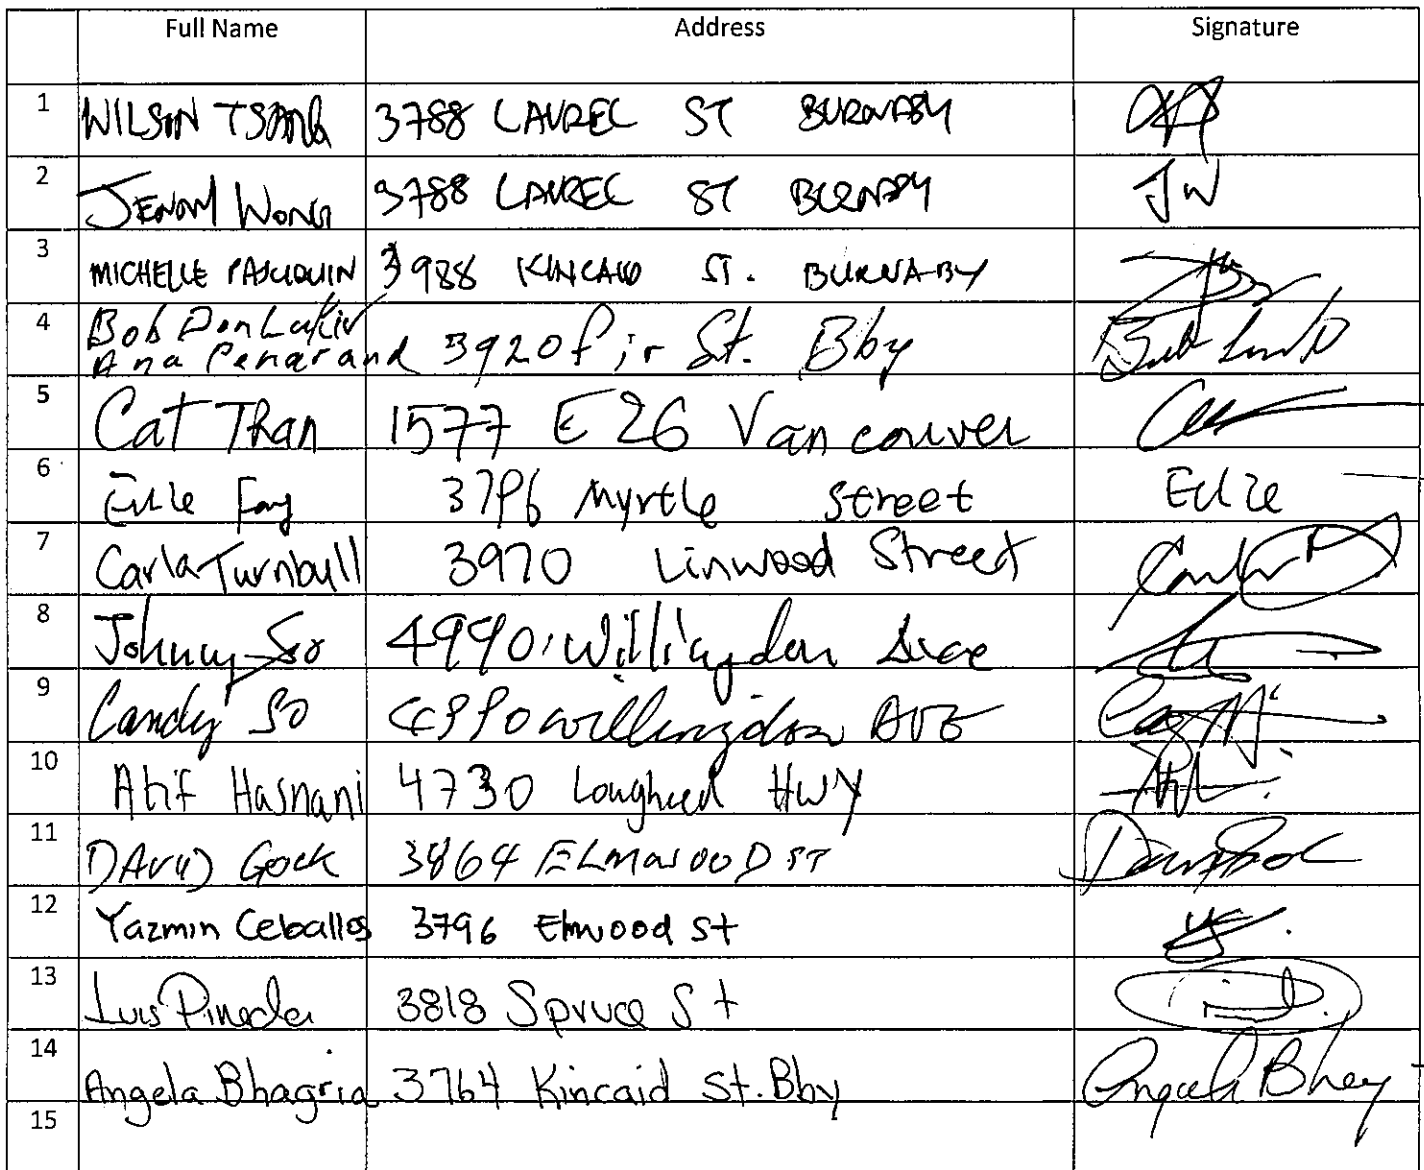 Full Name Address Signature
1 WILSON TSANG 3788 LAUREL ST BURNABY
2 JENNY WONG 3788 LAUREL ST BURNABY JW
3 MICHELLE PASCUQUIN 3988 KINCAID ST. BURNABY
4 Bob Don Lukiv
Ana Penarand 3920 fir St. Bby
5 Cat Than 1577 E 26 Vancouver
6 Fay 3796 Myrtle Street
7 Carla Turnbull 3970 Linwood Street
8 Johnny So 4990 Willingdon Ave
9 Candy So 4990 willingdon AVE
10 Atif Hasnani 4730 Lougheed HWY
11 DAVID Gock 3864 ELMWOOD ST
12 Yazmin Ceballos 3796 Elmwood St
13 Luis Pineda 3818 Spruce St
14 Angela Bhagria 3764 Kincaid St. Bby Angela Bhag
15